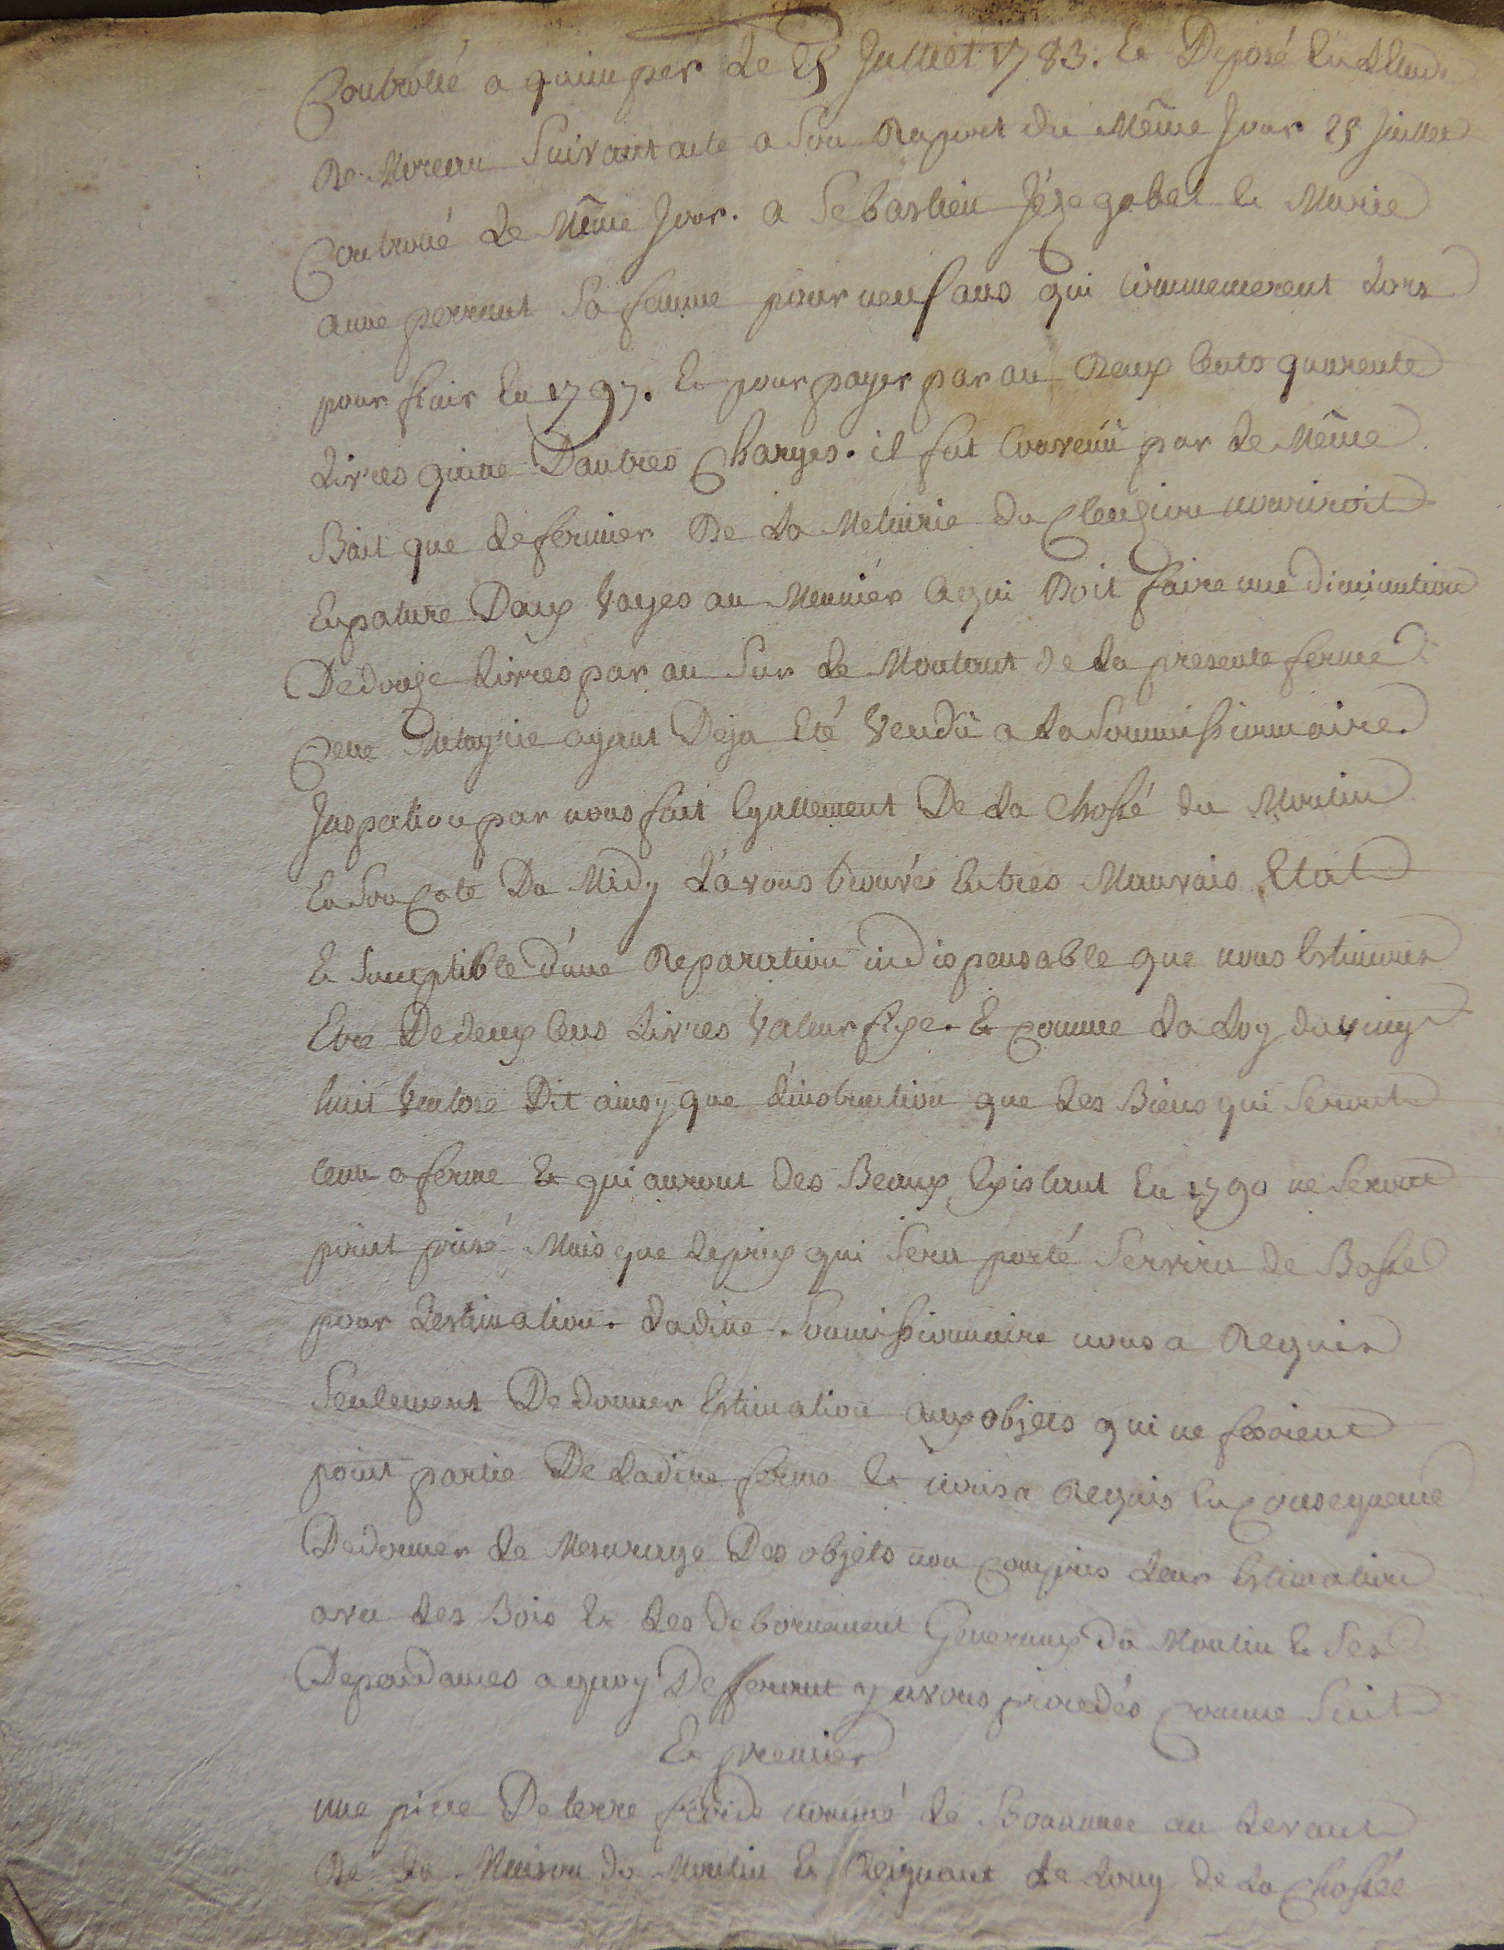 Controllé a quimper Le 25 Juillet 1783. Et Deposé En Létude
De Moreau Suivant acte a Son Raport du Même Jour 25 Juillet
Controllé Le Même Jour. a Sebastien Jézegabel Et Marie
anne perrant Sa femme pour neuf ans qui Commencerent Lors
pour finir En 1797. Et pour payer par an Deux Cents quarente
Livres quitte D'autres Charges. il fut Convenu par Le Même
Bail que Le fermier De La Metairie du Cleuziou nouriroit
En pature Deux Vages au Meunier Ce qui Doit faire une diminution
De douze Livres par an Sur Le Montant de La presente ferme
Cette Metayrie ayant Deja Eté Vendu a La Soumissionnaire.
Inspection par nous fait Egallement De La Chossé du Moulin
En Son Coté Du Midy L'avons trouvés En tres Mauvais Etat
Et Suceptible d'une Reparation indispensable que nous Estimons
Etre De deux Cens Livres Valeur fixe. Et Comme La Loy du vingt
huit Ventose Dit ainsy que L'instruction que Les Biens qui Seront
tenu a ferme Et qui auront Des Beaux Existant En 1790 ne Seront
point prisé Mais que Le prix qui Sera porté Servira de Basse
pour Lestimation. Ladite Soumissionnaire nous a Requis
Seulement De donner Estimation aux objets qui ne fesoient
point partie De Ladite ferme Et nous a Requis En Consequence
De donner Le Mesurage Des objets non Compris Leur Estimation
avec Les Bois Et Les debornement Generaux du Moulin Et Ses
Dependances a quoy Deferant y avons procedés Comme Suit
Et premier
une piece De terre froide nommé Le au Levant
De La Maison du Moulin Et Reignant Le Long de La Chossée